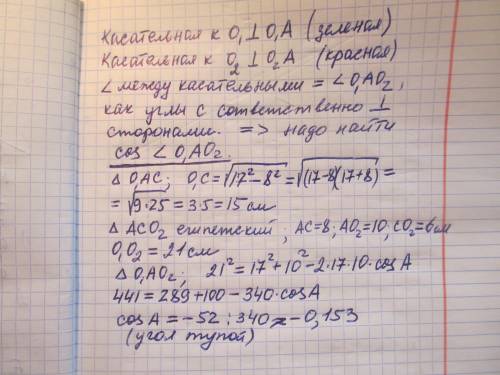 Касательная к O₁⊥O₁A (зеленая)
Касательная к O₂⊥O₂A (красная)
∠ между касательными = ∠O₁AO₂,
как углы с сответственно ⊥
сторонами. => надо найти
cos ∠O₁AO₂.
△ O₁AC; O₁C=√(17²-8²)=√((17-8)(17+8))=
=√(9·25)=3·5=15см
△ ACO₂ египетский; AC=8; AO₂=10; CO₂=6см
O₁O₂=21см
△ O₁AO₂; 21²=17²+10²-2·17·10·cosA
441=289+100-340·cosA
cosA=-52:340≈-0,153
(угол тупой)